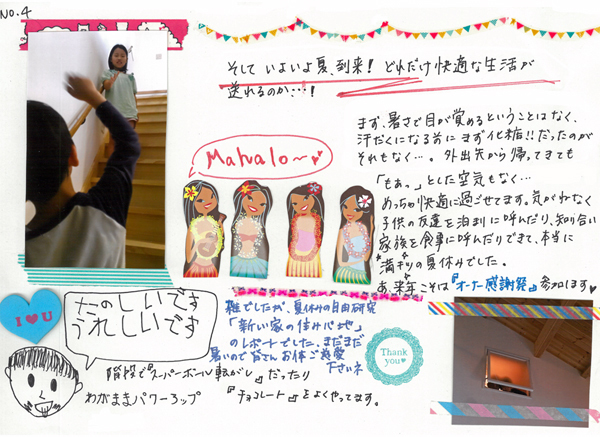 NO.4
そして いよいよ夏、到来! どれだけ快適な生活が
送れるのか…!
まず、暑さで目が覚めるということはなく、
汗だくになる前にまず化粧!!だったのが
それもなく…。外出先から帰ってきても
「もぁ。」とした空気もなく…
めっちゃ快適に過ごせてます。気がねなく
子供の友達を泊まりに呼んだり、知り合い
家族を食事に呼んだりできて、本当に
満キツの夏休みでした。
あ、来年こそは『オーナー感謝祭』参加します♥
Mahalo~♥
I ♥ U
たのしいです
うれしいです
雑でしたが、夏休みの自由研究
「新しい家の住み心地」
のレポートでした。まだまだ
暑いので皆さんお体ご慈愛
下さいネ
Thank
you♥
階段で『スーパーボール転がし』だったり
わがままパワーろップ
『チョコレート』をよくやってます。